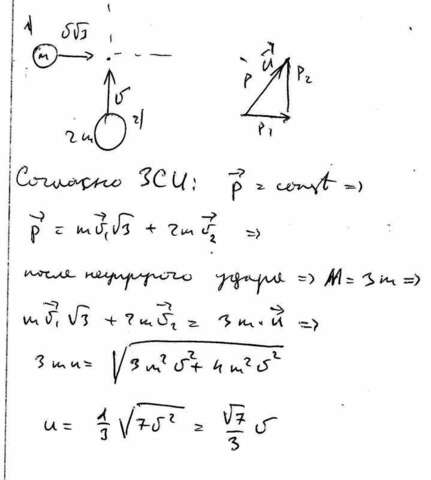 1) υ√3
m
υ
2m 2)
p⃗ u⃗ p₂
p₁
Согласно ЗСИ: p⃗ = const =>
p⃗ = mυ⃗₁√3 + 2mυ⃗₂ =>
после неупругого удара => M = 3m =>
mυ⃗₁√3 + 2mυ⃗₂ = 3m·u⃗ =>
3mu = √(3m²υ² + 4m²υ²)
u = 1/3 √(7υ²) = √7/3 υ